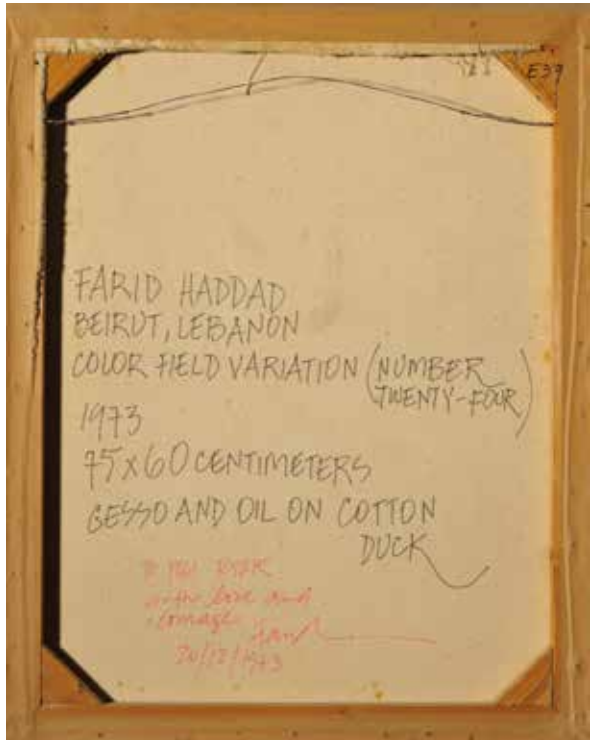 E39
FARID HADDAD
BEIRUT, LEBANON
COLOR FIELD VARIATION (NUMBER
TWENTY-FOUR)
1973
75x60 CENTIMETERS
GESSO AND OIL ON COTTON
DUCK
with love and
homage
20/12/1973